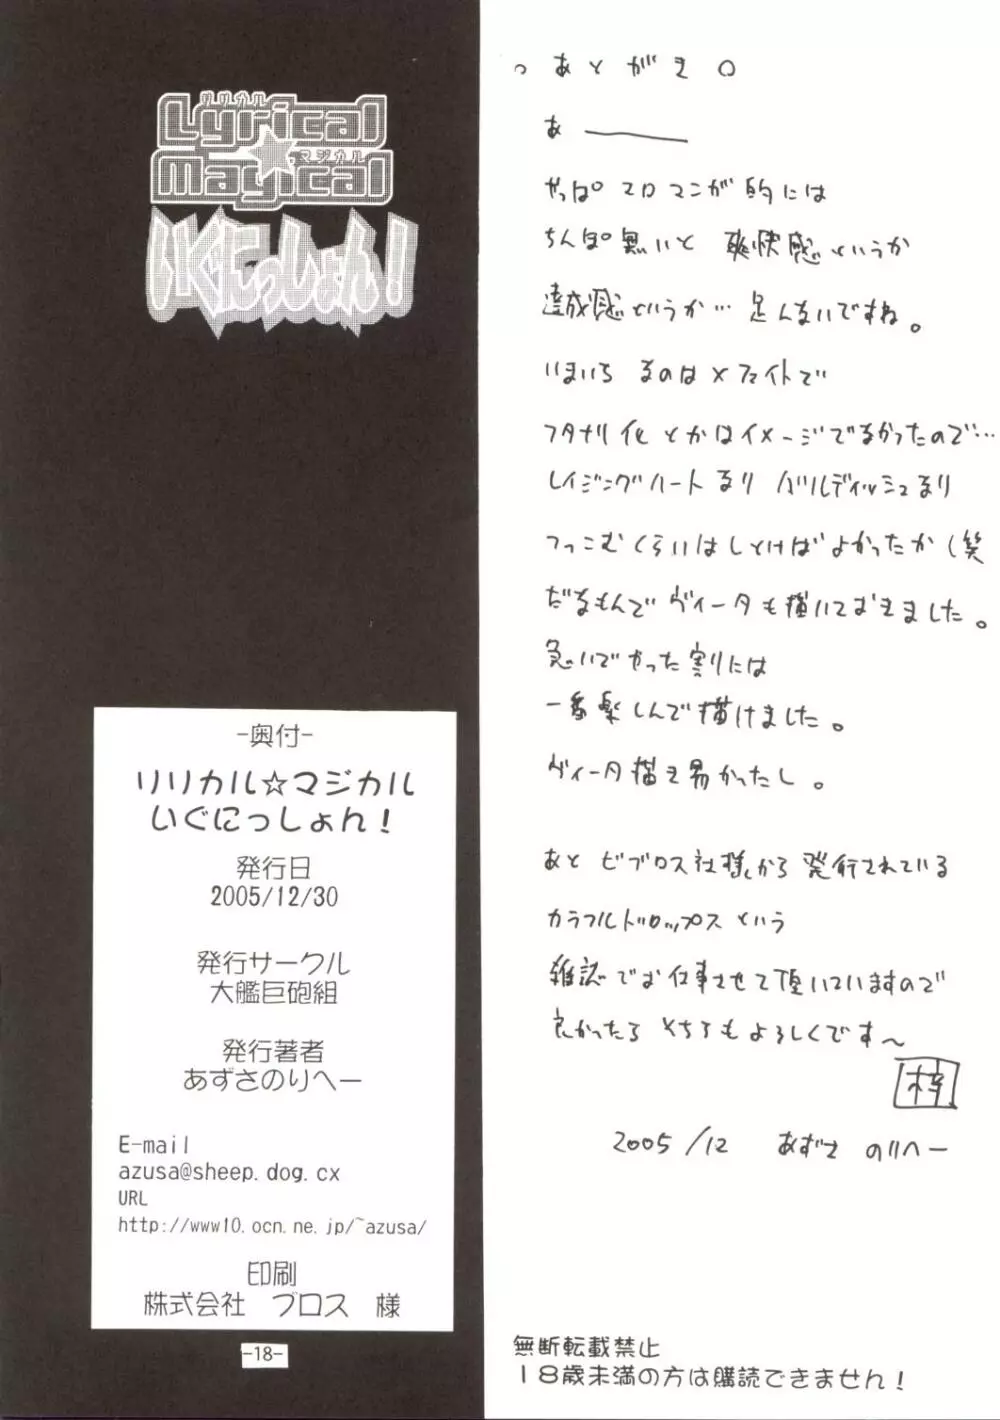 リリカル
Lyrical
マジカル
Magical
いぐにっしょん!
-奥付-
リリカル☆マジカル
いぐにっしょん!
発行日
2005/12/30
発行サークル
大艦巨砲組
発行著者
あずさのりへー
E-mail
azusa@sheep.dog.cx
URL
http://www10.ocn.ne.jp/~azusa/
印刷
株式会社 ブロス 様
-18-
。あとがき○
あ———
やっぱエロマンガ的には
ちんぽ無いと 爽快感というか
達成感というか… 足んないですね。
いまいち なのは×フェイトで
フタナリ化とかはイメージでなかったので…
レイジングハートなり バルディッシュなり
つっこむくらいはしとけばよかったか(笑
だなもんでヴィータも描いておきました。
急いでやった割りには
一番楽しんで描けました。
ヴィータ描き易かったし。
あと ビブロス社様から発行されている
カラフルドロップス という
雑誌でお仕事させて頂いていますので
良かったら そちらもよろしくです〜
梓
2005/12 あずさ のりへー
無断転載禁止
18歳未満の方は購読できません!